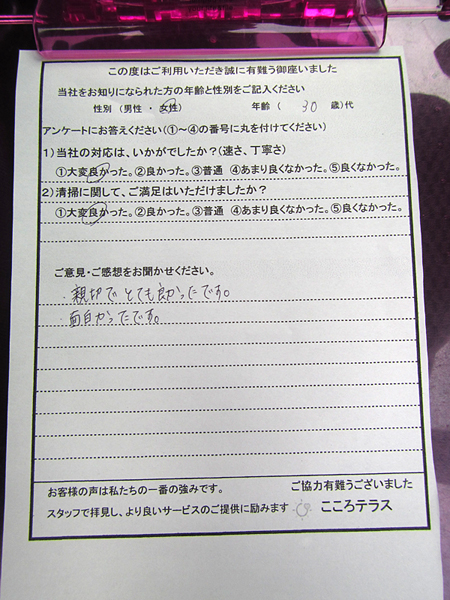 この度はご利用いただき誠に有難う御座いました
当社をお知りになられた方の年齢と性別をご記入ください
性別 (男性 ・ 女性) 年齢 ( 30 歳)代
アンケートにお答えください(①~④の番号に丸を付けてください)
1)当社の対応は、いかがでしたか?(速さ、丁寧さ)
①大変良かった。②良かった。③普通 ④あまり良くなかった。⑤良くなかった。
2)清掃に関して、ご満足はいただけましたか?
①大変良かった。②良かった。③普通 ④あまり良くなかった。⑤良くなかった。
ご意見・ご感想をお聞かせください。
・親切でとても良かったです。
・面白かったです。
お客様の声は私たちの一番の強みです。 ご協力有難うございました
スタッフで拝見し、より良いサービスのご提供に励みます こころテラス